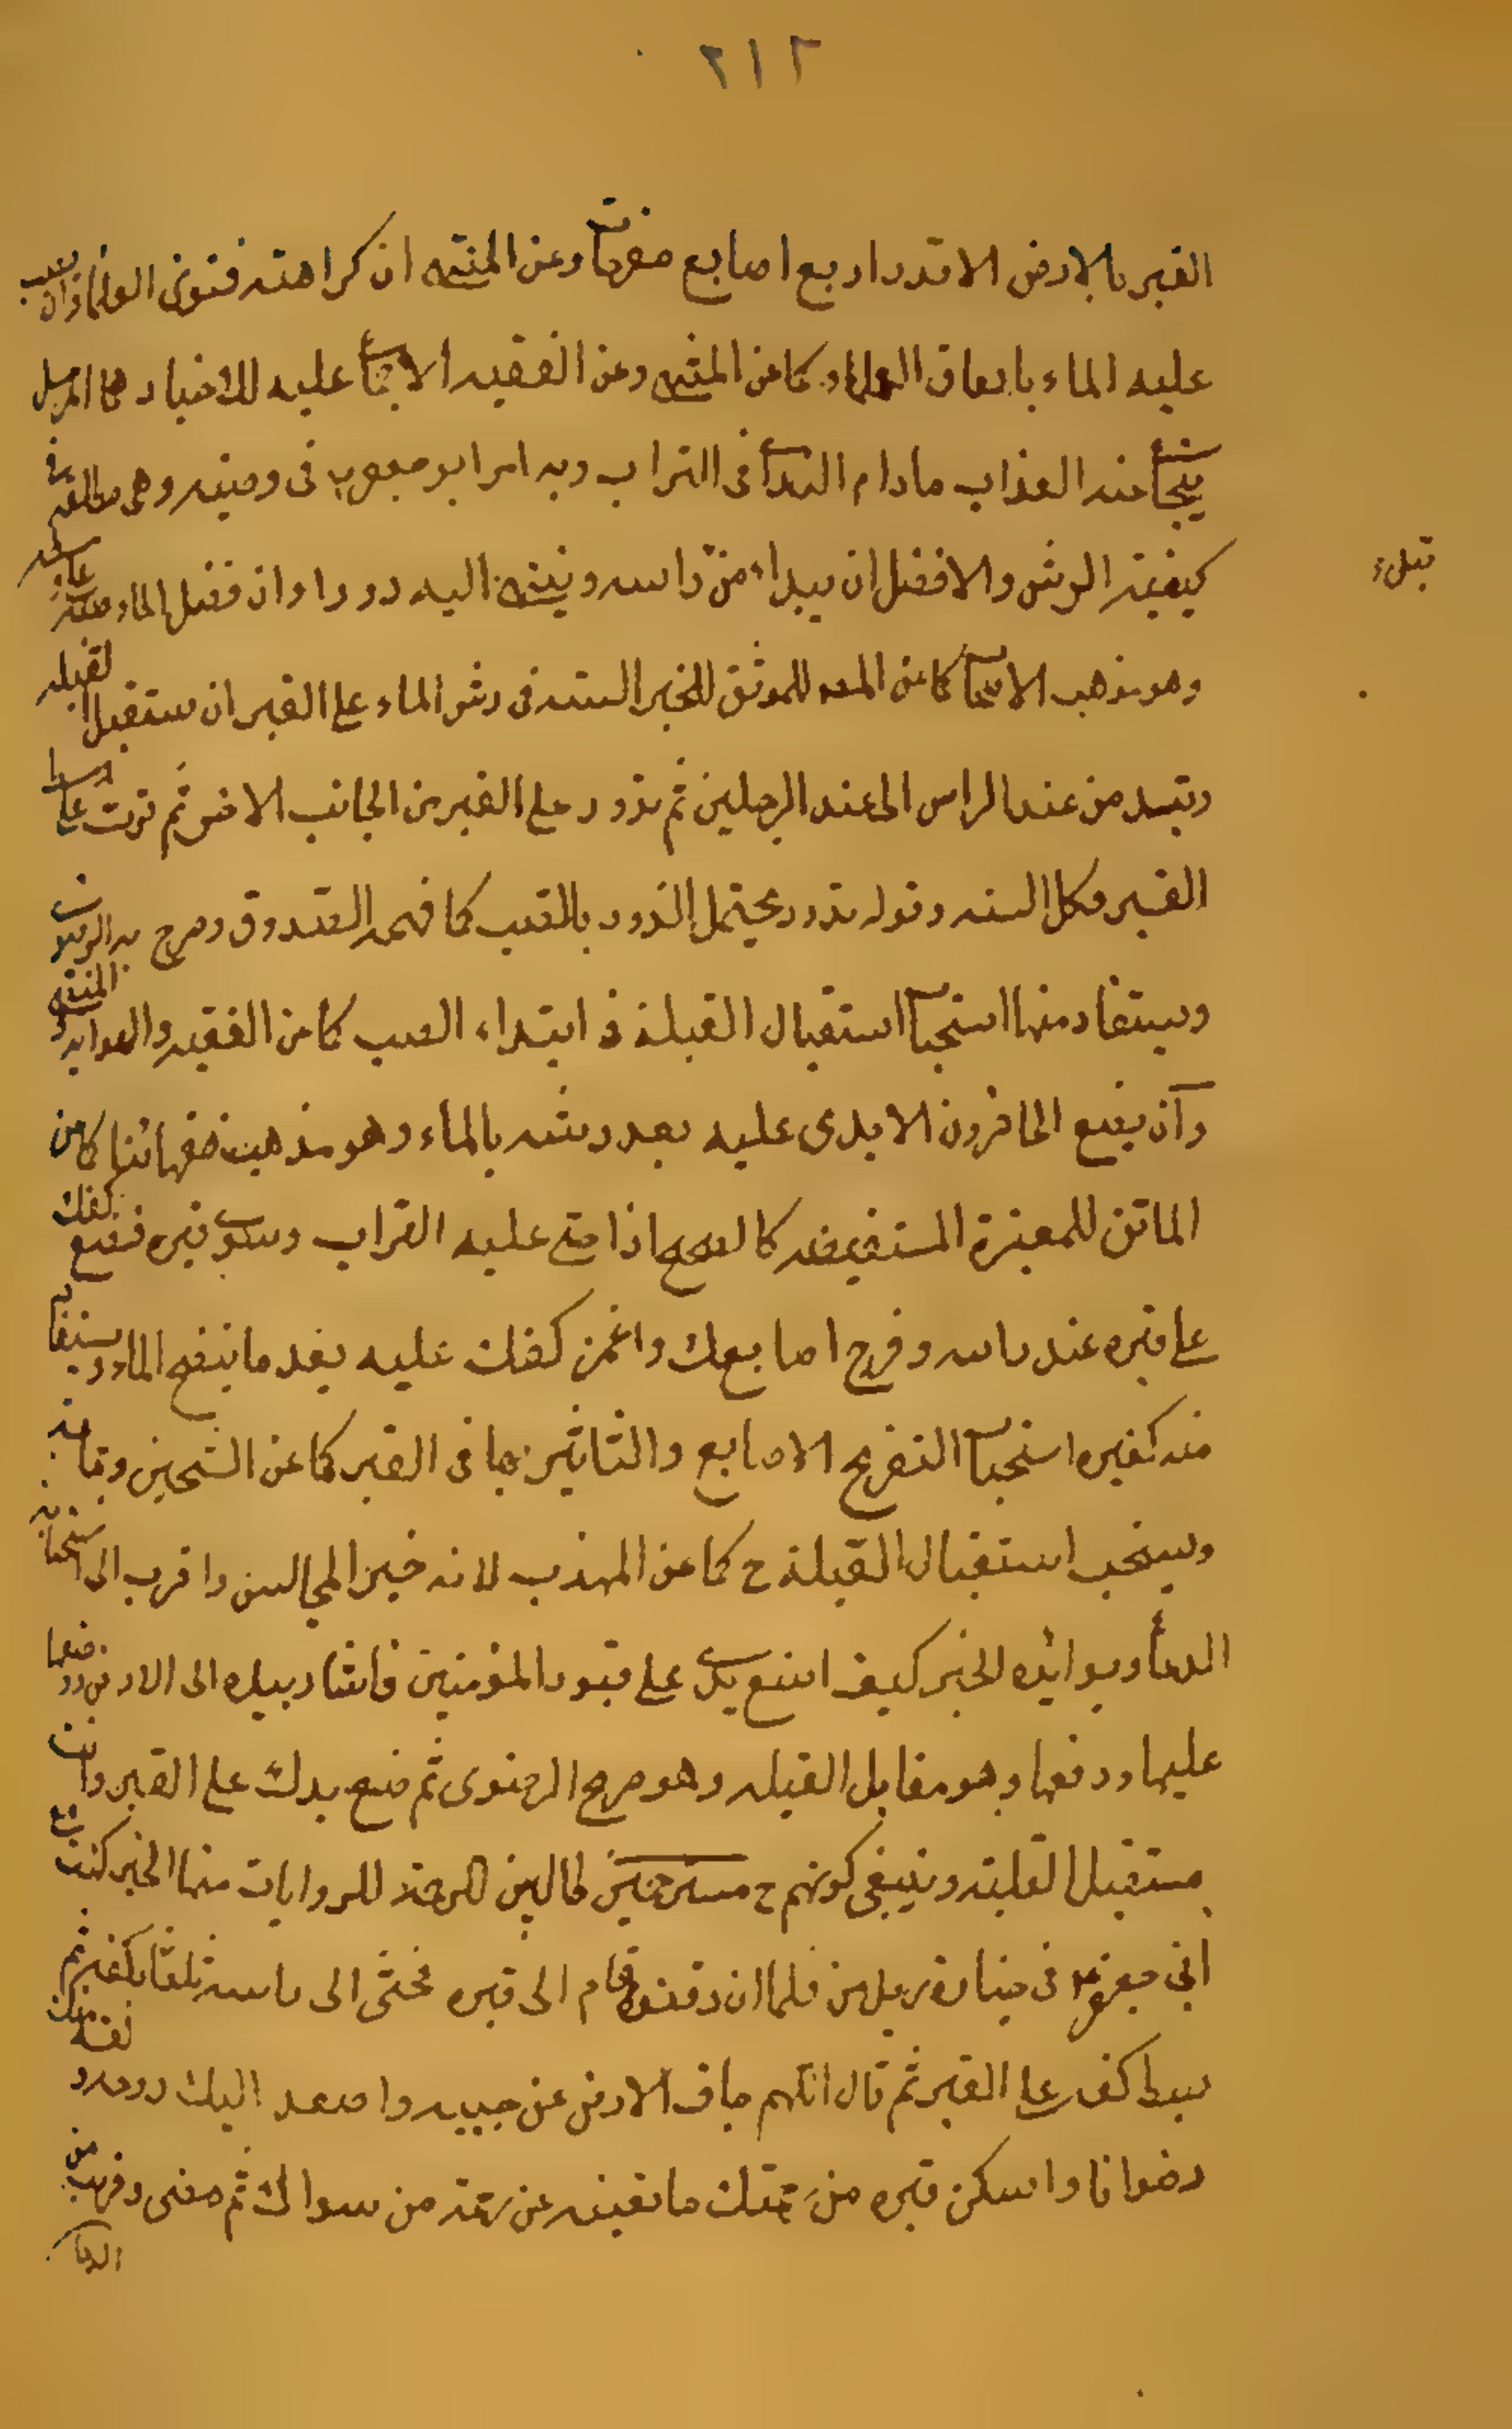 ٢١٢
القبر بالارض الا قدر اربع اصابع مفرجات وعن المنتهى ان كراهته فتوى العلماء وان يصب
عليه الماء باتفاق العلماء كما عن المنتهى وعن الفقيه الاجماع عليه للاخبار منها المرسل
يتجافى عنه العذاب ما دام الندى فى التراب وبه امر ابو جعفر فى وصيته وهى مطلقة فى
كيفية الرش والافضل ان يبداء من راسه وينتهى اليه دورا وان فضل الماء صبه على وسطه
قبل
وهو مذهب الاصحاب كما عن المعتبر للموثق للخبر السنه فى رش الماء على القبر ان ستقبل القبله
وتبدء من عند الراس الى عند الرجلين ثم تدور على القبر من الجانب الاخر ثم ترش على وسط
القبر فكل السنه وقوله تدور يحتمل الدور بالصب كما فهمه الصدوق وصرح به الرضوى
ويستفاد منها استحباب استقبال القبلة فى ابتداء الصب كما عن الفقيه والهداية والمنتهى
وآن يضع الحاضرون الايدى عليه بعد رشه بالماء وهو مذهب فقهائنا كما عن
الماتن للمعتبرة المستفيضه كالصحيح اذا حثى عليه التراب وسوى قبره فضع كفك
على قبره عند راسه وفرج اصابعك واغمز كفك عليه بعد ما ينضح الماء ويستفاد
منه كغيره استحباب التفريج الاصابع والتاثير بها فى القبر كما عن الشيخين
ويستحب استقبال القبلة ح كما عن المهذب لانه خير المجالس واقرب الى استجابة
الدعاء ويؤيده الخبر كيف اضع يدى على قبور المؤمنين فاشار بيده الى الارض ووضعها
عليها ورفعها وهو مقابل القبله وهو صريح الرضوى ثم ضع يدك على القبر وانت
مستقبل القبلته وينبغى كونهم ح مسترحمين طالبين للرحمة للروايات منها الخبر كنت مع
ابى جعفر فى جنازة رجل من فلما ان دفنوه قام الى قبره فحثى الى راسه ثلثا بكفه ثم
بسط كفه على القبر ثم قال اللهم جاف الارض عن جنبيه واصعد اليك روحه ولقه منك
رضوانا واسكن قبره من رحمتك ما تغنيه عن رحمة من سواك ثم مضى وقريب من
الدعاء